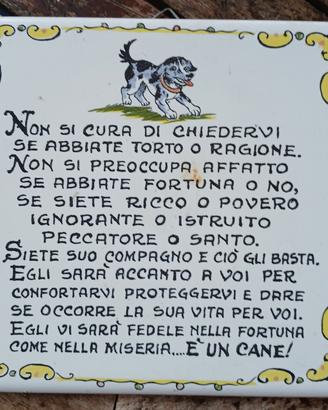 NON SI CURA DI CHIEDERVI
SE ABBIATE TORTO O RAGIONE.
NON SI PREOCCUPA AFFATTO
SE ABBIATE FORTUNA O NO,
SE SIETE RICCO O POVERO
IGNORANTE O ISTRUITO
PECCATORE O SANTO.
SIETE SUO COMPAGNO E CIÒ GLI BASTA.
EGLI SARÀ ACCANTO A VOI PER
CONFORTARVI PROTEGGERVI E DARE
SE OCCORRE LA SUA VITA PER VOI.
EGLI VI SARÀ FEDELE NELLA FORTUNA
COME NELLA MISERIA....È UN CANE!